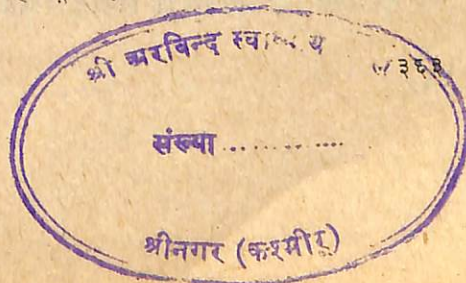 श्री अरविन्द
३६३
संख्या ..............
श्रीनगर (कश्मीर)